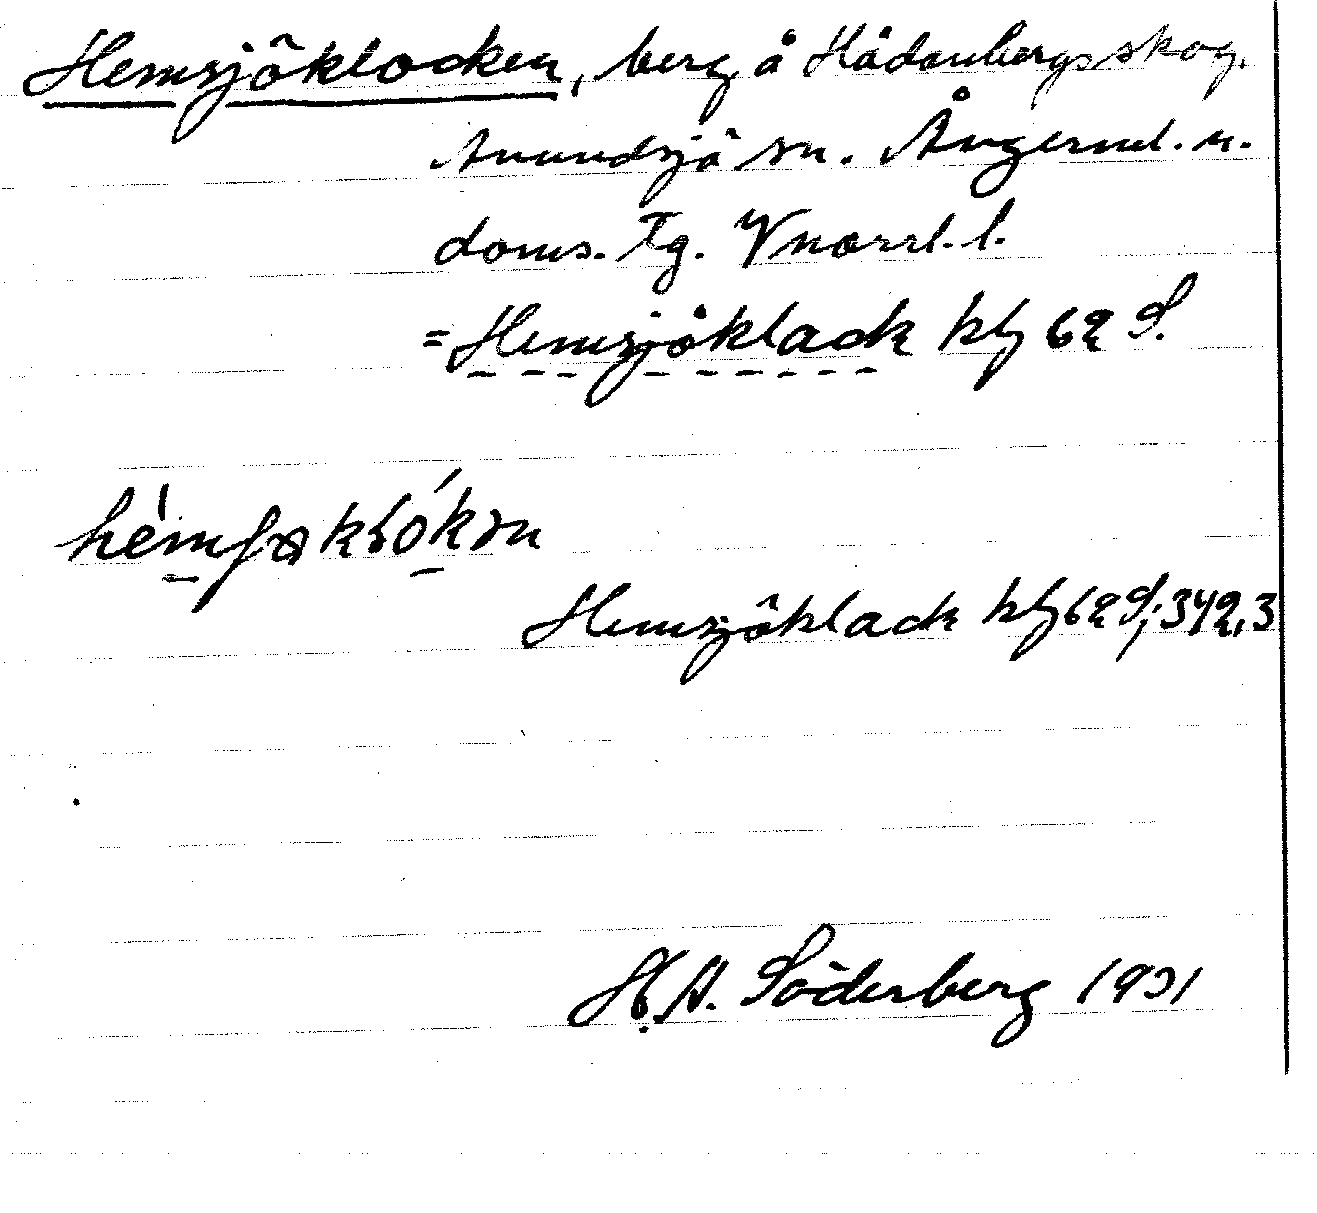 Hemsjöklocken, berg å Hädanbergs skog.
Anundsjö sn. Ångerml. n.
doms. Tg. Vnorrl. l.
= Hemsjöklack kbl 62 S.
Hemsjöklack kbl 62 S; 342,3
H. A. Söderberg 1931